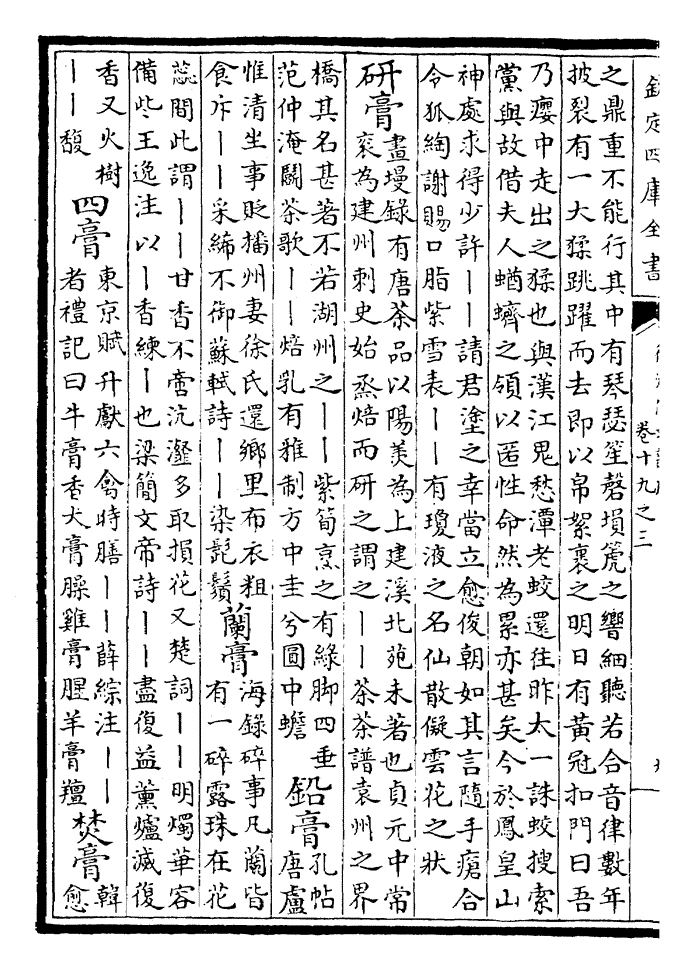 欽定四庫全書
卷十九之三
之鼎重不能行其中有琴瑟笙磬塤篪之響細聽若合音律數年
披裂有一大猱跳躍而去即以帛絮裹之明日有黃冠扣門曰吾
乃癭中走出之猱也與漢江鬼愁潭老蛟還往昨太一誅蛟搜索
黨與故借夫人蝤蠐之領以匿性命然為累亦甚矣今於鳳皇山
神處求得少許丨丨請君塗之幸當立愈俊朝如其言隨手瘡合
令狐綯謝賜口脂紫雪表丨丨有瓊液之名仙散儗雲花之狀
研膏
畫墁錄有唐茶品以陽羨為上建溪北苑未著也貞元中常
袞為建州刺史始烝焙而研之謂之丨丨茶茶譜袁州之界
橋其名甚著不若湖州之丨丨紫筍烹之有綠脚四垂
范仲淹鬬茶歌丨丨焙乳有雅制方中圭兮圓中蟾
鉛膏
孔帖
唐盧
惟清坐事貶播州妻徐氏還鄉里布衣粗
食斥丨丨采絺不御蘇軾詩丨丨染髭鬚
蘭膏
海錄碎事凡蘭皆
有一碎露珠在花
蕊間此謂丨丨甘香不啻沆瀣多取損花又楚詞丨丨明燭華容
備些王逸注以丨香練丨也梁簡文帝詩丨丨盡復益薰爐滅復
香又火樹
丨丨馥
四膏
東京賦升獻六禽時膳丨丨薛綜注丨丨
者禮記曰牛膏香犬膏臊雞膏腥羊膏羶
焚膏
韓
愈